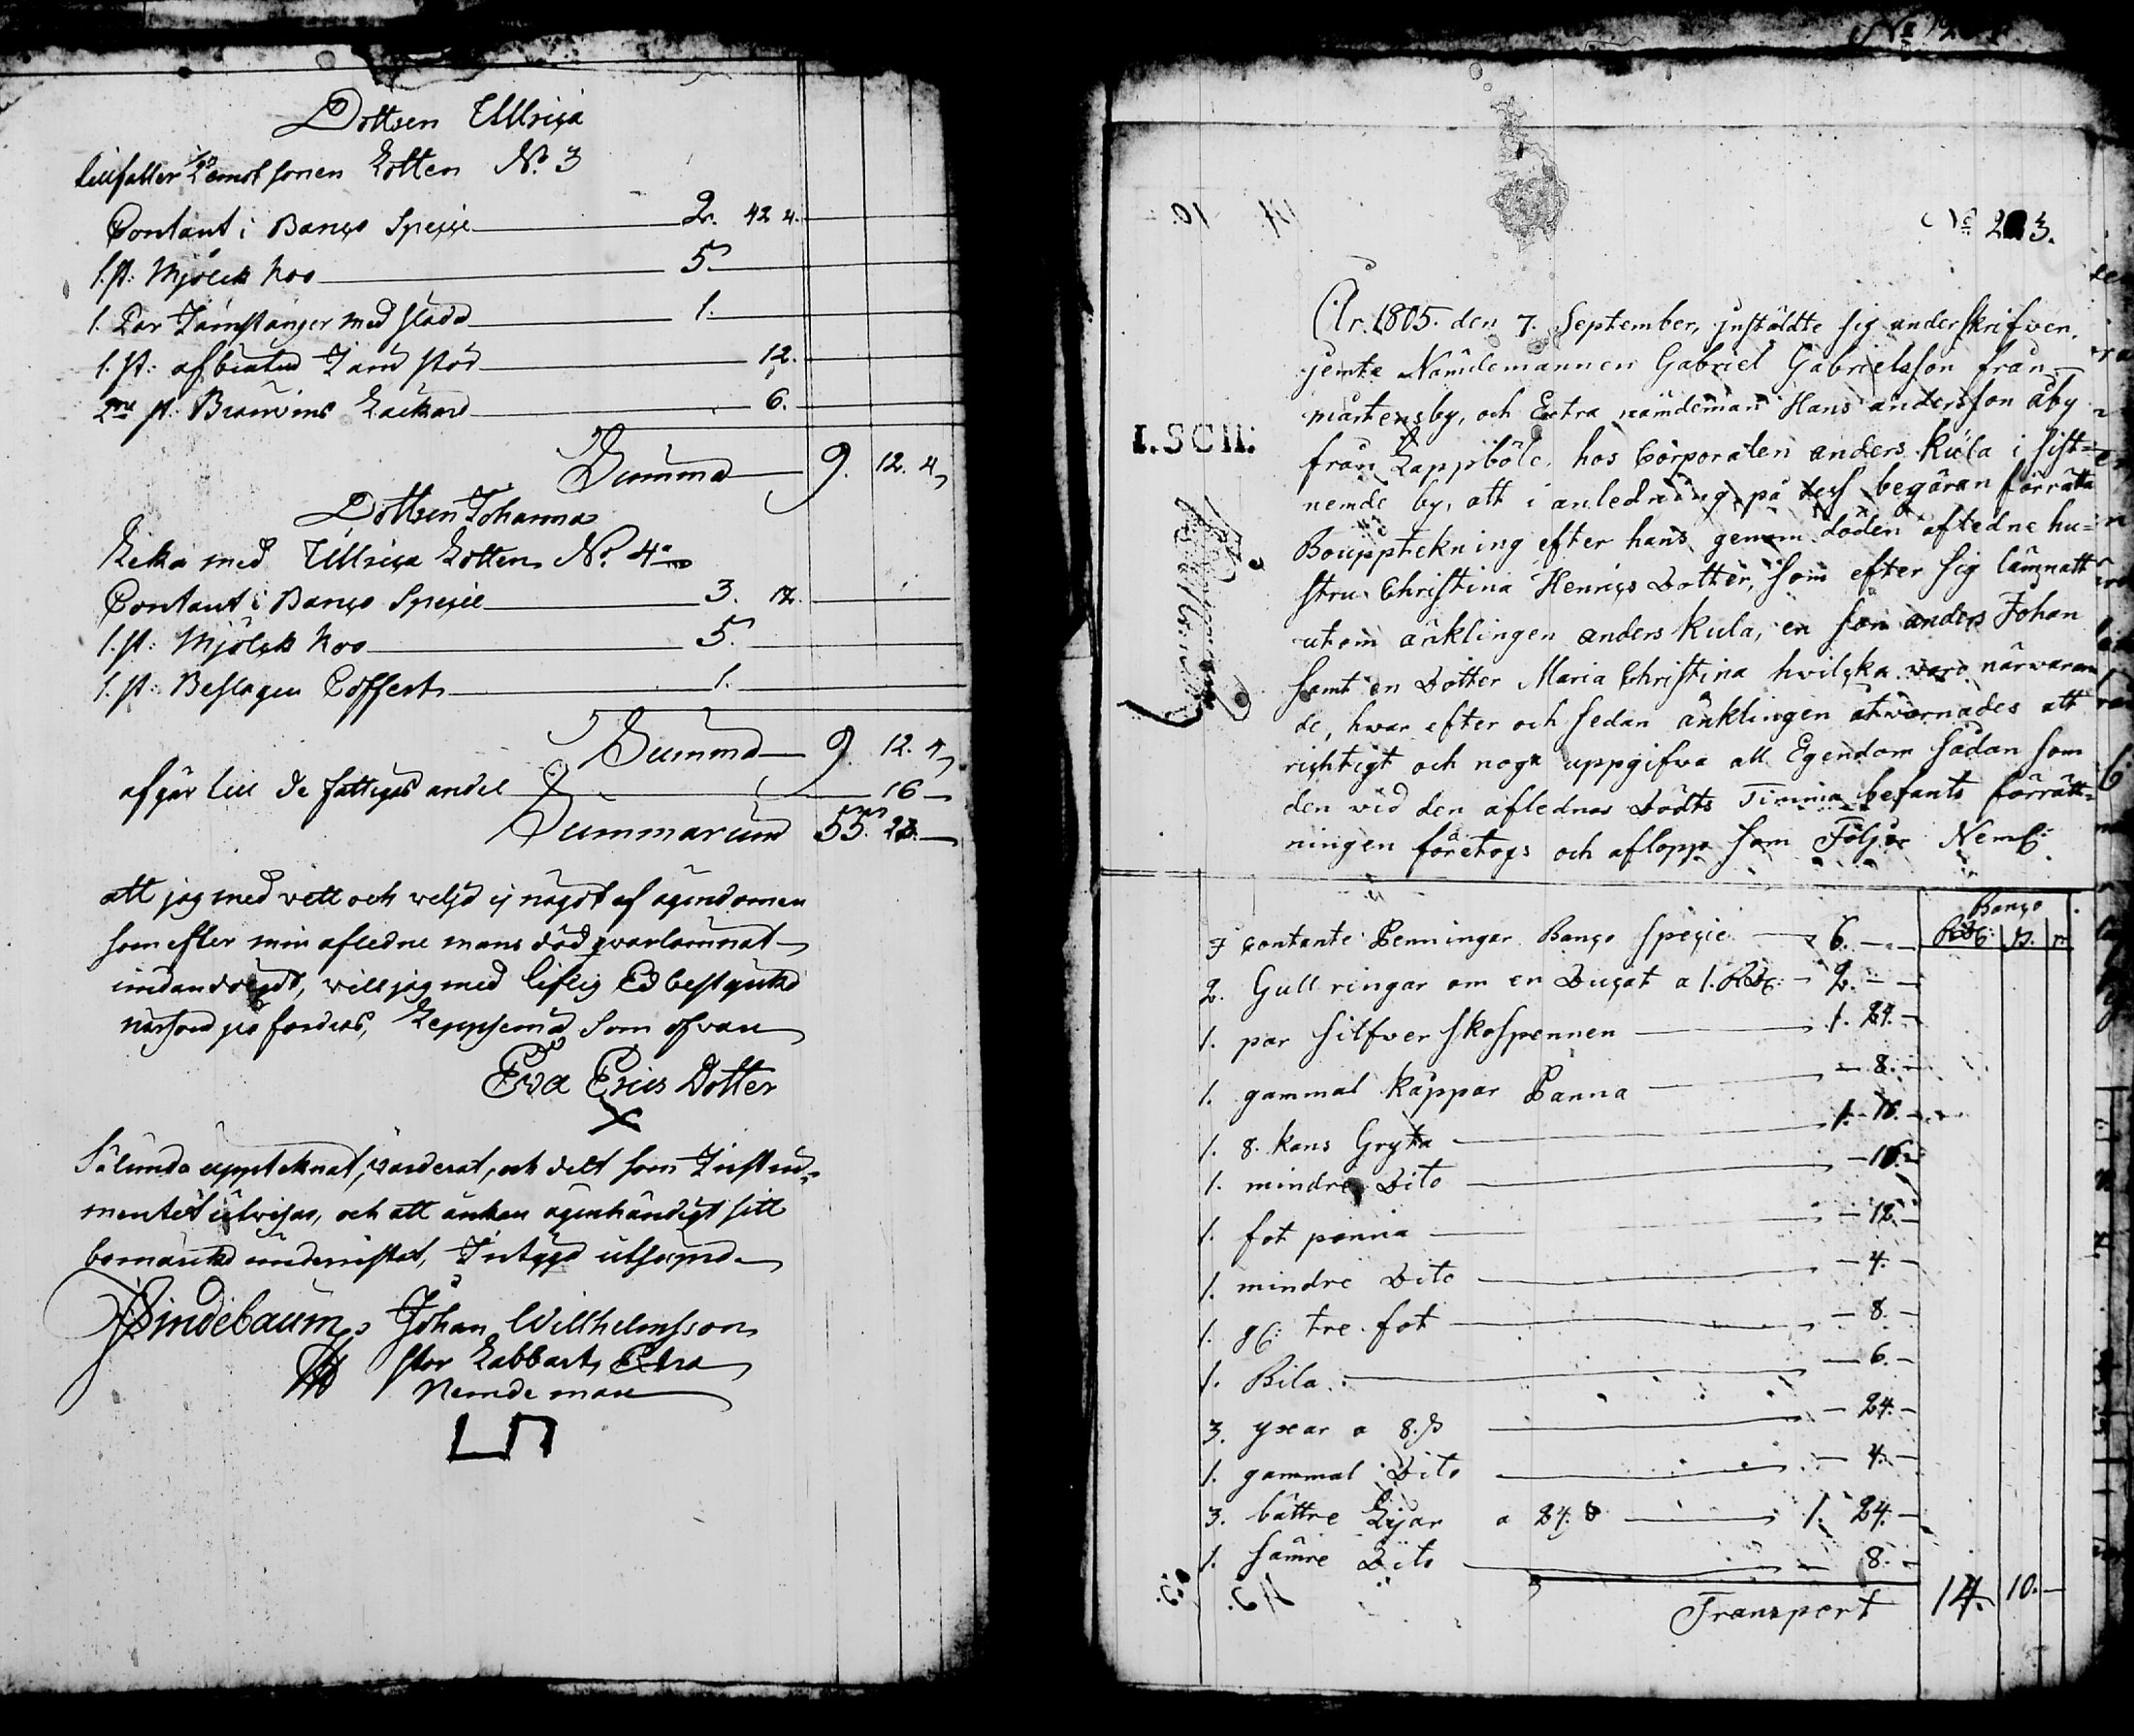 Dottren Ullrica
tillfaller emot sonen Lotten No. 3
Contant i Banco Specie 2. 42 4.
1. st: Mjölck Koo 5.
1. Par Järnstänger med 1.
1. st: 12.
2ne st: Bränvins 6.
Summa 9. 12. 4
Dottren Johanna
Lika med Ullrica Lotten No. 4
Contant i Banco Specie 3. 12.
1. st: Mjölck Koo 5.
1. st: Beslagen Coffert 1.
Summa 9. 12. 4
afgår till de fattigas andel 16
Summarum 55. 28.
att jag med vett och velja ej något af ägendomen
som efter min afledne mans död qvarlämnat
undandolgdt, vill jag med liflig Ed bestyrka
när så fordras, som ofvan
Eva Erics Dotter
X
Sålunda uppteknat, värderat, och delt som Instru-
mentet utvisar, och att änkan ägenhändigt sitt
bomärke underristat, Intyga utsupra
Lindebaum Johan Willhelmsson
stor Labbart, Extra
Nemdeman
No 12
10. 14
No 213.
År 1805. den 7. September, instäldte sig underskrifven,
jemte Nämdemannen Gabriel Gabrielsson från
Mårtensby, och Extra nämdeman Hans andersson åby
I.SCH:
från Lappböle. hos Corporalen anders Kula i sist-
nemde by, att i anledning på dess begäran förrätta
Boupptekning efter hans genom döden afledne hu-
stru Christina Henrics Dotter, som efter sig lämnatt
utom änklingen anders Kula, en son anders Johan
samt en Dotter Maria Christina hvilcka voro närvaran
de, hvar efter och sedan änklingen åtvarnades att
richtigt och noga uppgifva all Egendom sådan som
den vid den aflednas Dödts Timma befants förrätt-
ningen företogs och aflopp som Följer Neml:
Banco
Rd: s. r
I contante Penningar Banco Specie 6.
2. Gull ringar om en Ducat a 1. Rd: 2.
1. par silfver skospennen 1. 24.
1. gammal käppar Panna 8.
1. 8. kans Gryta 1. 16.
1. mindre Dito 16.
1. fot panna 12.
1. mindre Dito 4.
1. gl: tre fot 8.
1. Bila 6.
3. yxar a 8. s 24.
1. gammal Dito 4.
3. bättre Lijar a 24. s 1. 24.
1. sämre Dito 8.
Transport 14. 10.